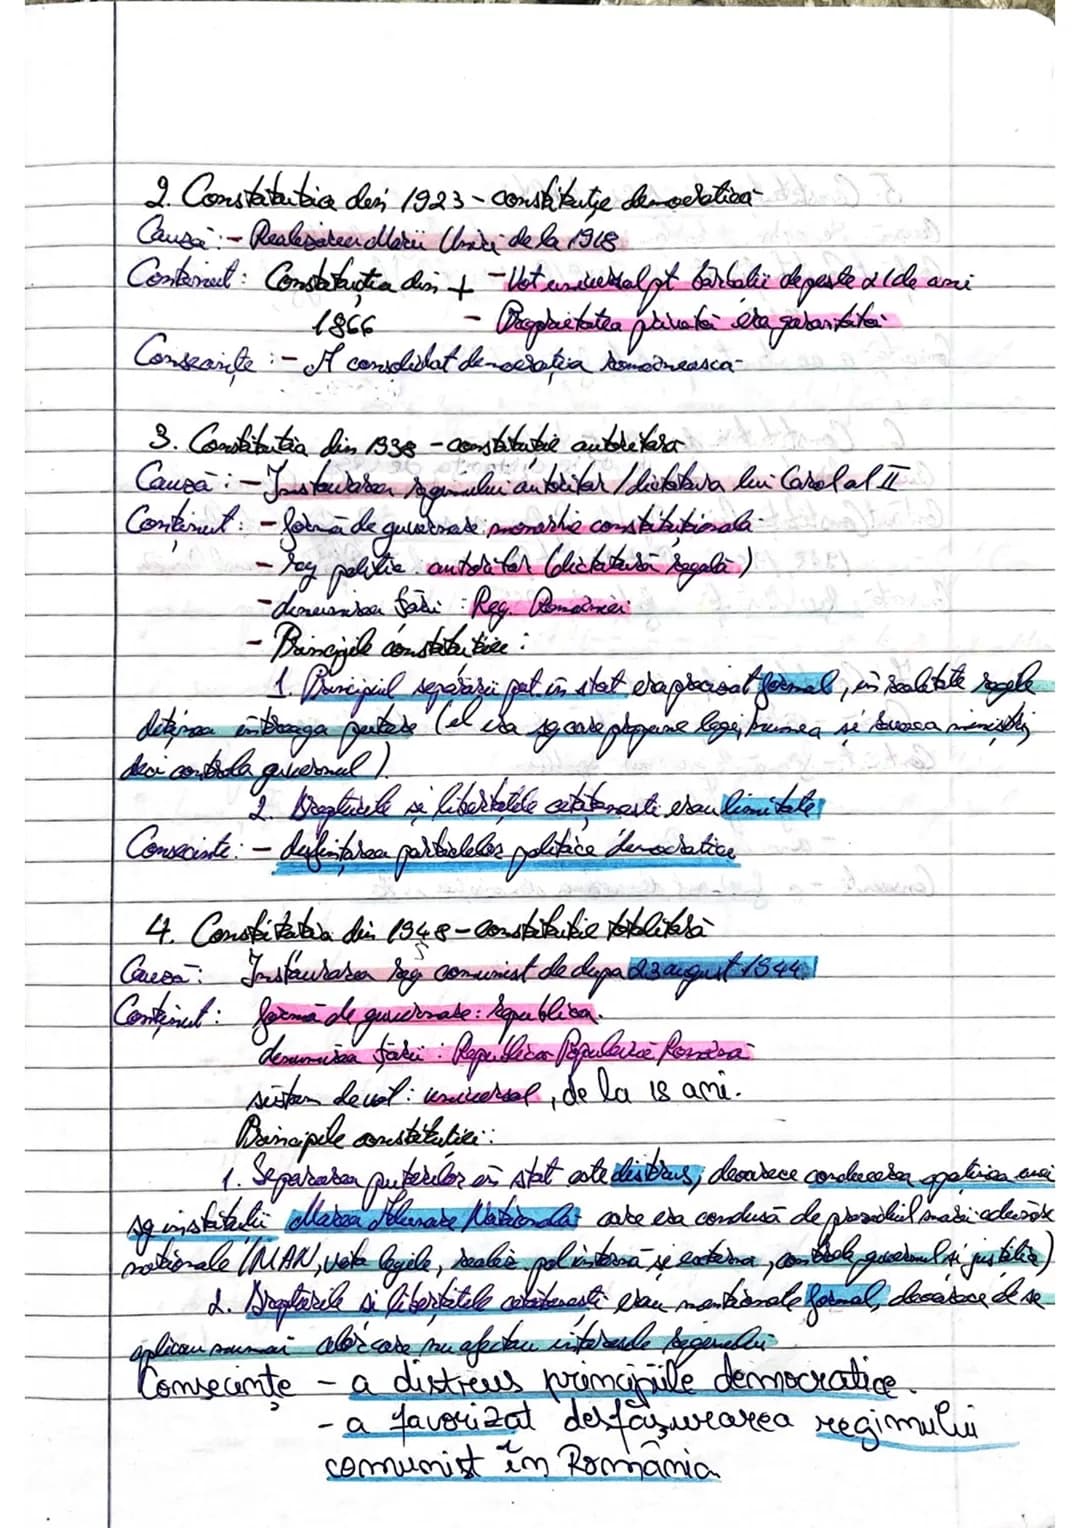 2. Constitutia din 1923 - constituție democratică
Causa: - Realizarea Marii Uniri de la 1918
Continut: Constituția din + - Vot universal pt bărbatii de peste 21 de ani
1866 - Proprietatea privată era garantată
Consecințe: - A consolidat democrația românească
3. Constitutia din 1938 - constitutie autoritara
Cauză: - Instaurarea regimului autoritar / dictatura lui Carol al II
Conținut: - formă de guvernare monarhie constituțională
- reg politic autoritar (dictatură regală)
- denumirea țării: Reg. României
- Principiile constitutiei:
1. Principiul separării put. în stat era precizat formal, în realitate regele
deținea întreaga putere (el era sg care propune legi, numea si revoca miniștri,
deci controla guvernul).
2. Drepturile si libertatile cetătenesti erau limitate
Consecinte: - desfintarea partidelor politice democratice
4. Constitutia din 1948 - constitutie totalitară
Causă: Instaurarea reg comunist de dupa 23 august 1944
Conținut: formă de guvernare: republica.
denumirea țării: Republica Populară Română
sistem de vot: universal, de la 18 ani.
Principiile constitutiei:
1. Separarea puterilor în stat este distrus, deoarece conducerea aparținea unei
sg instituții Marea Adunare Națională care era condusă de prezidiul marii adunări
naționale (MAN, vota legile, realiza pol internă si externa, controla guvernul și justiția)
2. Drepturile si libertatile cetatenesti erau mentionate formal, deoarece de se
aplicau numai celor care nu afectau interesele regimului
Consecințe - a distrus principiile democratice.
- a favorizat desfășurarea regimului
comunist în România